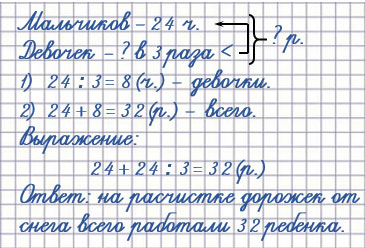 Мальчиков – 24 ч.
Девочек – ? в 3 раза <
? р.
1) 24 : 3 = 8 (ч.) – девочки.
2) 24 + 8 = 32 (р.) – всего.
Выражение:
24 + 24 : 3 = 32 (р.)
Ответ: на расчистке дорожек от
снега всего работали 32 ребенка.